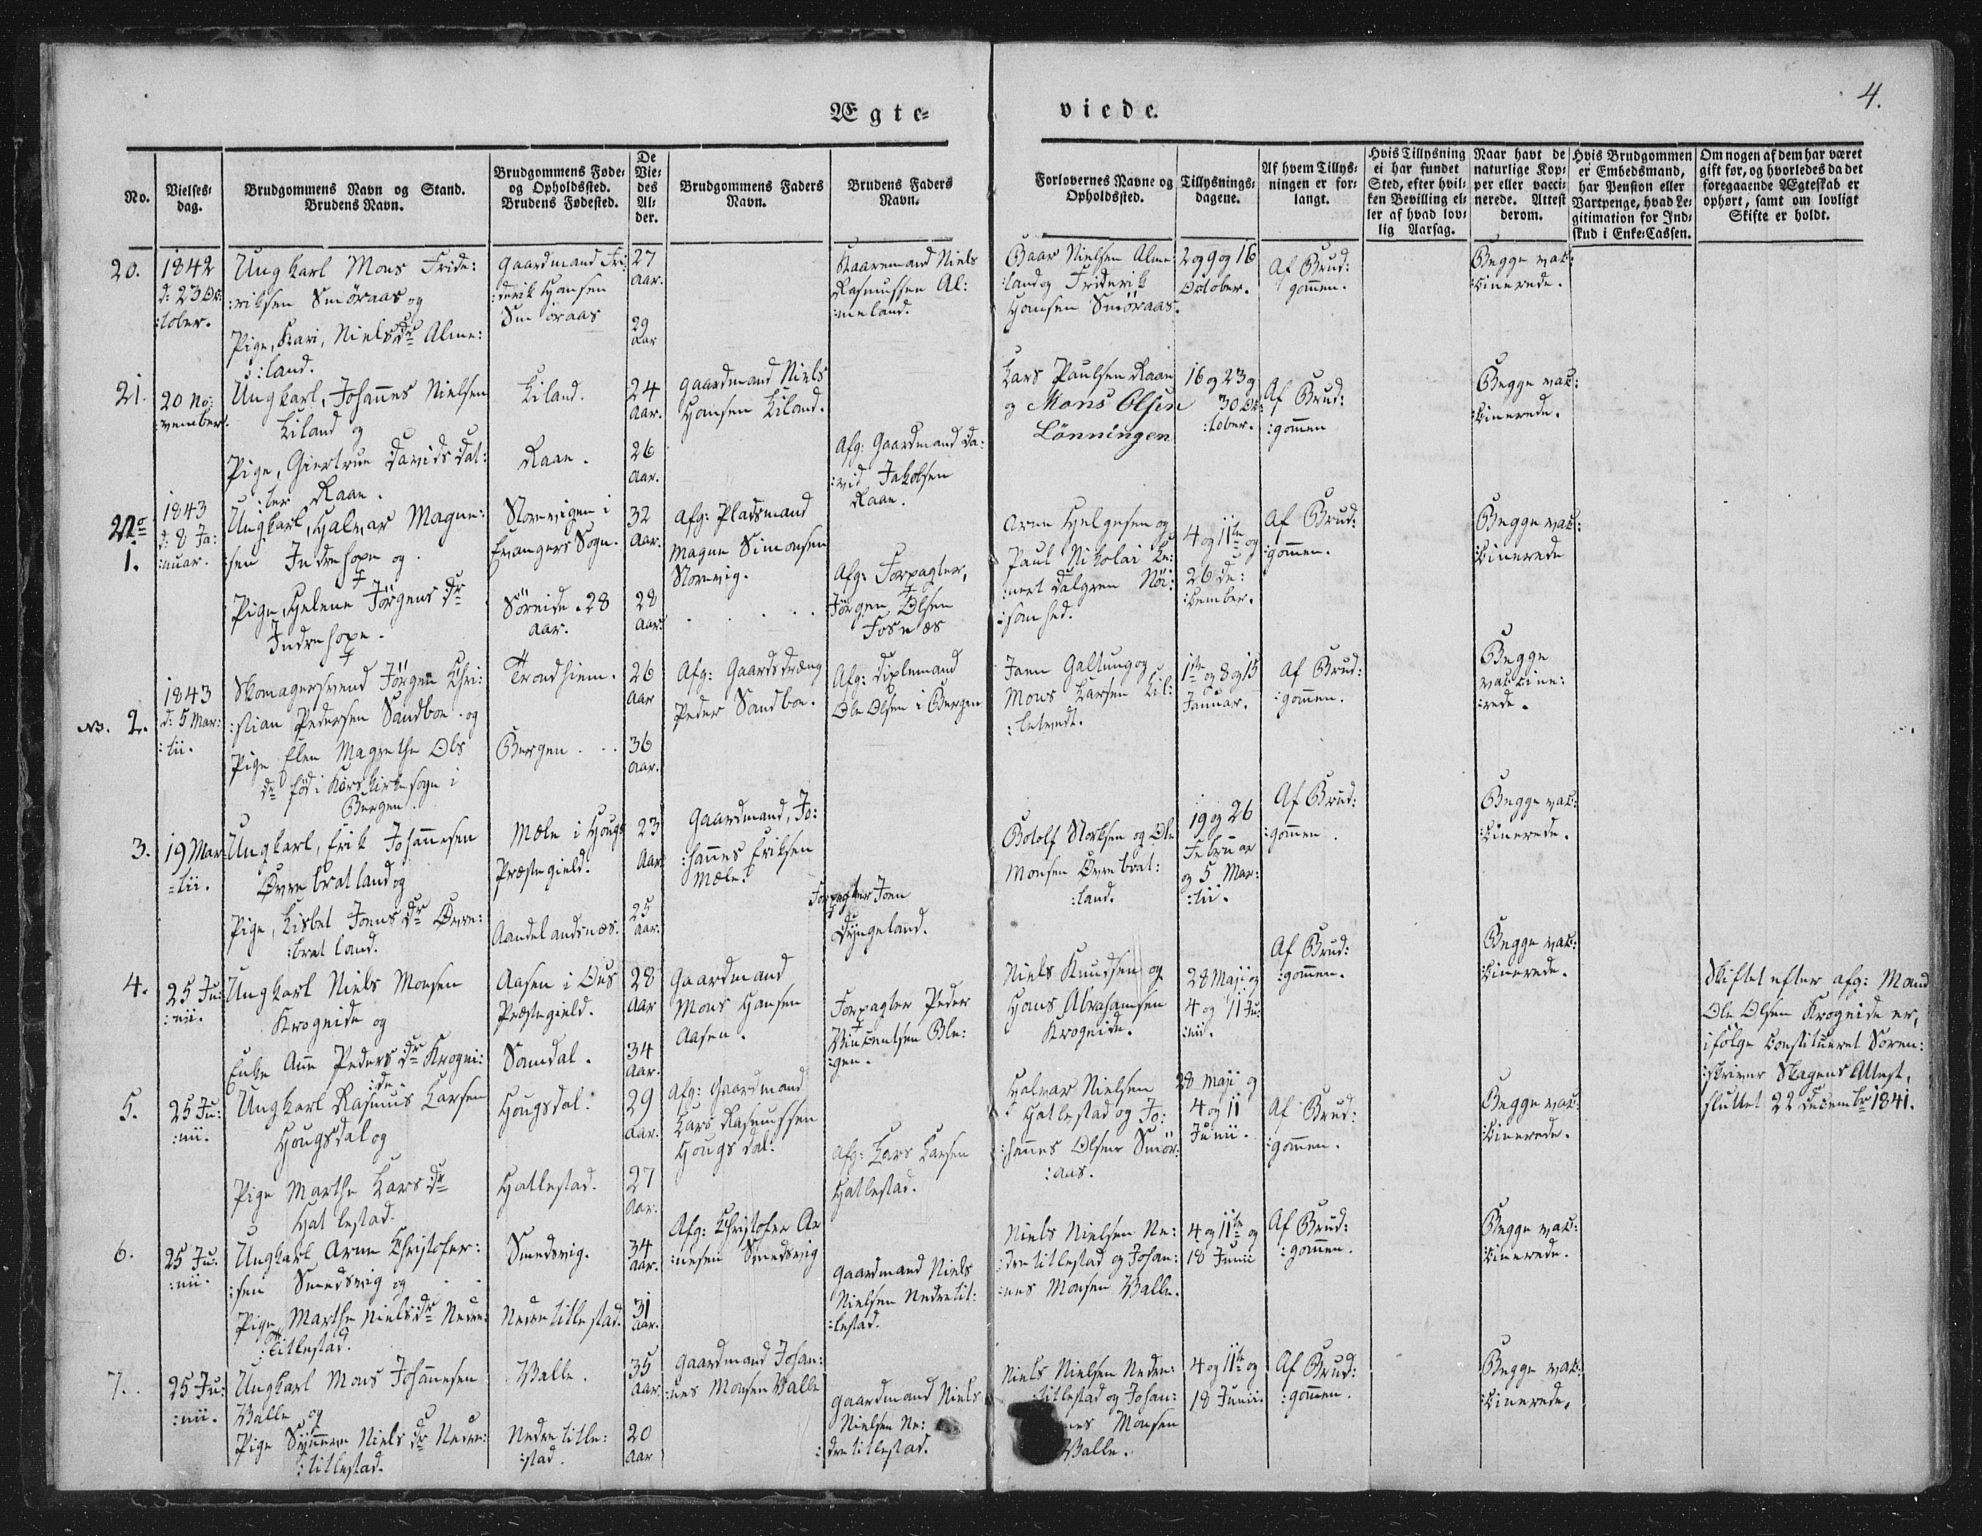 4.
Ægte-
viede.
No.
Vielses-
dag.
Brudgommens Navn og Stand.
Brudens Navn.
Brudgommens Føde-
og Opholdssted.
Brudens Fødested.
De
Vie-
des
Al-
der.
Brudgommens Faders
Navn.
Brudens Faders
Navn.
Forlovernes Navne og
Opholdssted.
Tillysnings-
dagene.
Af hvem Tillys-
ningen er for-
langt.
Hvis Tillysning
ei har fundet
Sted, efter hvil-
ken Bevilling el-
ler af hvad lov-
lig Aarsag.
Naar havt de
naturlige Kop-
per eller vacci-
nerede. Attest
derom.
Hvis Brudgommen
er Embedsmand,
har Pension eller
Vartpenge, hvad Le-
gitimation for Ind-
skud i Enke-Cassen.
Om nogen af dem har været
gift før, og hvorledes da det
foregaaende Ægteskab er
ophørt, samt om lovligt
Skifte er holdt.
20.
1842
d: 23 Oc:
:tober.
Ungkarl Mons Fride:
:riksen Smøraas og
Pige, Kari, Nielsdr Alme:
:land.
Gaardmand Fri:
:derik Hansen
Smøraas
27
Aar.
29
Aar
Kaaremand Niels
Rasmussen Al:
:meland.
Baar Nielsen Alme:
:land og Friderik
Hansen Smøraas.
2 og 9 og 16
October.
Af Brud:
gommen.
Begge vak:
:cinerede.
21.
20 No:
:vember.
Ungkarl, Johannes Nielsen
Liland og
Pige, Giertrue Davidsdat:
:ter Raae.
Liland.
Raae.
24
Aar.
26
Aar.
Gaardmand Niels
Hansen Liland.
Afg: Gaardmand Da:
:vid Jakobsen
Raae.
Lars Paulsen Raae
og Mons Olsen
Lønningen
16 og 23 og
30 Oc:
:tober.
Af Brud:
:gommen
Begge vak:
:cinerede.
No
1.
1843
d: 8 Ja:
:nuar.
Ungkarl, Halvar Magne:
:sen Indrehope og
Pige, Helene Jørgensdr
Indrehope.
Norevigen i
Evanger Sogn.
Søreide. 28
Aar.
32
Aar.
28
Aar.
Afg: Pladsmand
Magne Simonsen
Norevig.
Afg: Forpagter,
Jørgen Olsen
Fosnæs
Arne Helgesen og
Paul Nikolai Le:
:nert Dalgren Nøi:
:somhed.
4 og 11te og
26 De:
:cember.
Af Brud:
:gommen.
Begge vak:
:cinerede
NB. 2.
1843
d: 5 Mar:
:tii.
Skomagersvend Jørgen Chri:
:stian Pedersen Sandboe. og
Pige Elen Magrethe Ols
dr fød i Korskirkesogn i
Bergen
Trondhiem.
Bergen
26
Aar
36
Aar.
Afg: Gaardsdræng
Peder Sandboe.
Afg: Diplemand
Ole Olsen i Bergen
Joen Galtung og
Mons Larsen Lil:
:letvedt.
1te og 8 og 15
Januar.
Af Brud:
:gommen.
Begge
vakcine:
:rede.
3.
19 Mar
=tii.
Ungkarl, Erik Johannesen
Øvrebratland og
Pige, Lisbet Joensdr Øvre:
:bratland.
Mæle i Hougs
Præstegield.
Aadelandsnæs.
23
Aar
25
Aar.
Gaardmand, Jo:
:hannes Eriksen
Mæle.
Forpagter Joen
Dyngeland.
Botolf Norksen og Ole
Monsen Øvrebrat:
:land.
19 og 26
Februar
og 5 Mar:
:tii.
Af Brud:
:gommen.
Begge vak:
:cinerede.
4.
25 Ju:
:nii.
Ungkarl Niels Monsen
Krogeide og
Enke Ane Pedersdr Krogei:
:de.
Aasen i Ous
Præstegield.
Samdal.
28
Aar
34
Aar.
Gaardmand
Mons Hansen
Aasen.
Forpagter Peder
Vincentsen Ble:
:gen.
Niels Knudsen og
Hans Abrahamsen
Krogeide.
28 Maji og
4 og 11 Ju:
:nii.
Af Brud:
:gommen.
Begge vak:
:cinerede.
Skiftet efter afg: Mand
Ole Olsen Krogeide er,
ifølge Constitueret Soren:
:skriver Hagens Attest,
sluttet 22 Decembr 1841.
5.
25 Ju:
:nii.
Ungkarl Rasmus Larsen
Hougsdal og
Pige Marthe Larsdr
Hatlestad.
Hougsdal.
Hatlestad.
29
Aar.
27
Aar.
Afg: Gaardmand
Lars Rasmussen
Hougsdal.
Afg: Lars Larsen
Hatlestad.
Halvar Nielsen
Hatlestad og Jo:
:hannes Olsen Smør:
:aas.
28 Maji og
4 og 11
Junii.
Af Brud:
:gommen.
Begge vak:
:cinerede.
6.
25 Ju:
:nii.
Ungkarl Arne Christofer:
:sen Smedsvig og
Pige Marthe Nielsdr Nedre:
:titlestad.
Smedsvig.
Nedretitlestad.
34
Aar.
31
Aar.
Afg: Christofer Ar
:nesen Smedsvig
Gaardmand Niels
Nielsen Nedretit:
:lestad.
Niels Nielsen Ne:
:dretitlestad og Johan:
:nes Monsen Valle.
4 og 11te og
18 Junii
Af Brud:
:gommen.
Begge vak:
:cinerede.
7.
25 Ju:
:nii.
Ungkarl Mons Johannesen
Valle og
Pige Synneve Nielsdr Nedre:
:titlestad.
Valle.
Nedretitle:
:stad.
35
Aar
20
Aar
Gaardmand Johan:
:nes Monsen Valle
Gaardmand Niels
Nielsen Ne:
:dretitlestad.
Niels Nielsen Nedre:
:titlestad og Johan:
:nes Monsen
Valle.
4 og 11te og
18 Junii.
Af Brud:
:gommen.
Begge vak:
:cinerede.